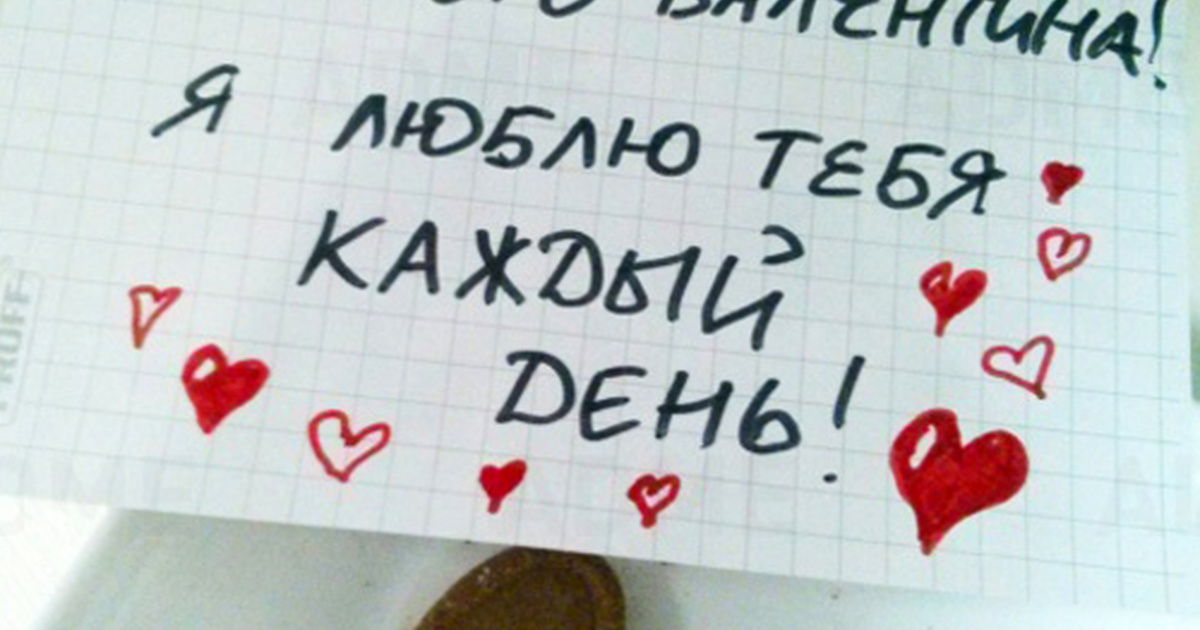 ВАЛЕНТИНА!
Я ЛЮБЛЮ ТЕБЯ
КАЖДЫЙ
ДЕНЬ!